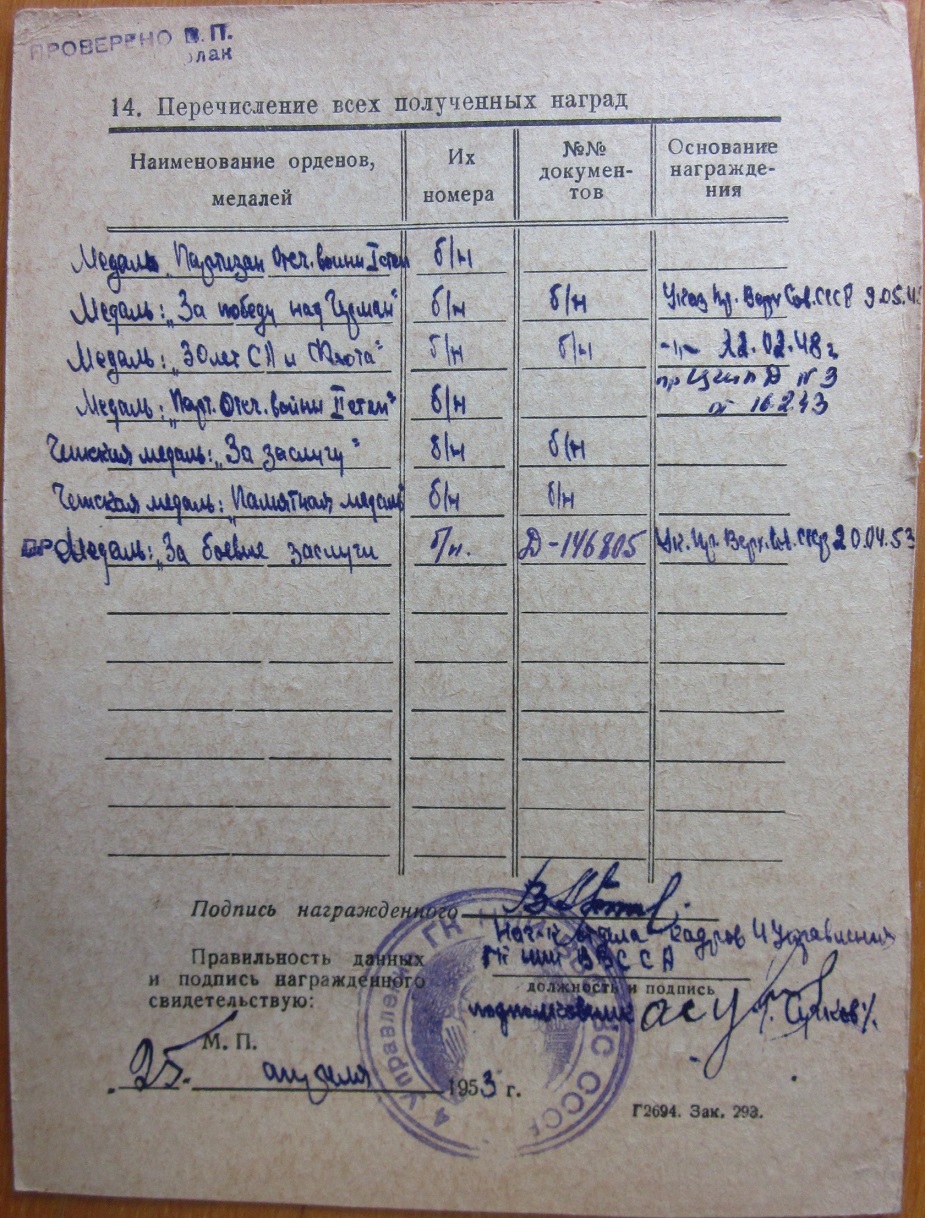 ПРОВЕРЕНО В.П.
14. Перечисление всех полученных наград
Наименование орденов, медалей
Их номера
№№ документов
Основание награждения
Медаль „Партизан Отч. войны I степ б/н
Медаль: „За победу над Герман“ б/н б/н Указ Пр. Верх Сов. СССР 9.05.4
Медаль: „30 лет СА и Флота“ б/н б/н -„- 22.02.48 г
Медаль: „Парт. Отч. войны II степ“ б/н пр ЦШПД № 3
от 16.2.43
Чешская медаль: „За заслугу“ б/н б/н
Чешская медаль: „Памятная медаль б/н б/н
Медаль: „За боевые заслуги б/н. Д-146805 Ук. Пр. Верх. Сов. СССР 20.04.53
Подпись награжденного
Нач-к отдела кадров 4 Управления
ГК НИИ ВВС СА
Правильность данных
и подпись награжденного
свидетельствую:
должность и подпись
подполковник
М. П.
25. апреля 1953 г.
4 Управление ГК НИИ ВВС СССР
Г2694. Зак. 293.